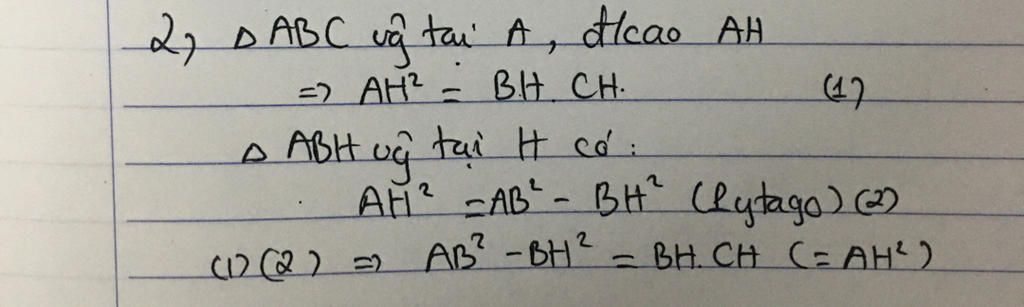 2, Δ ABC vg̃ tại A, đ/cao AH
=> AH² = BH. CH. (1)
Δ ABH vg̃ tại H có:
AH² = AB² - BH² (Pytago) (2)
(1) (2) => AB² - BH² = BH. CH (= AH²)